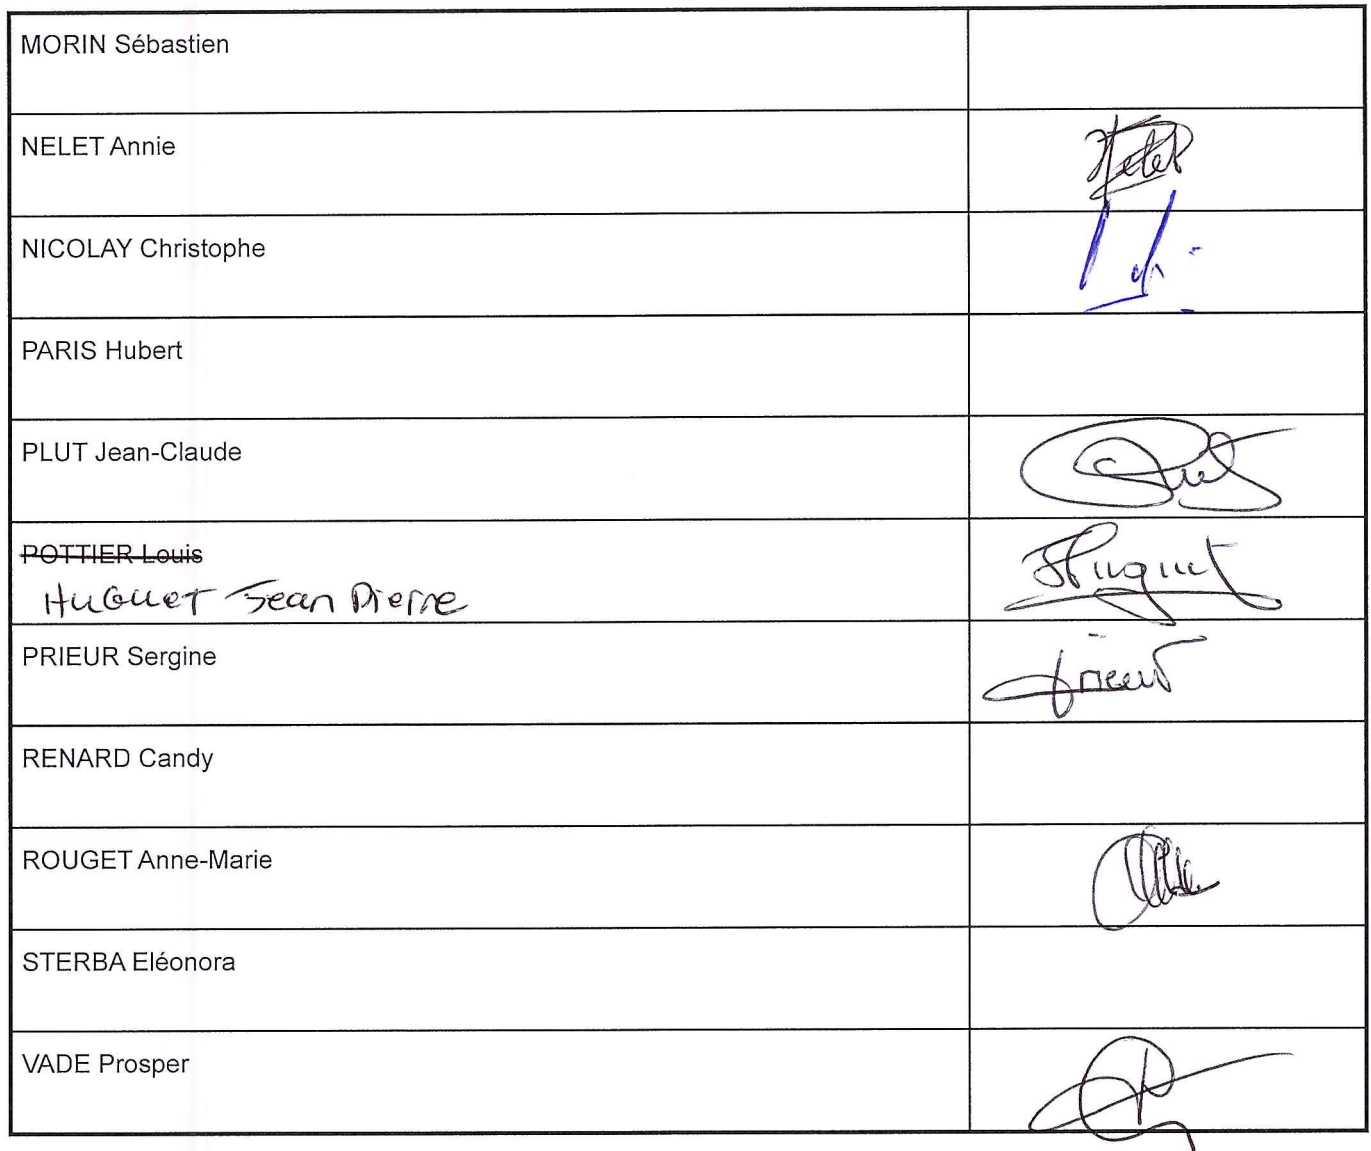 MORIN Sébastien
NELET Annie
Nelet
NICOLAY Christophe
PARIS Hubert
PLUT Jean-Claude
Plut
POTTIER Louis
HUGUET Jean Pierre
JHuguet
PRIEUR Sergine
Prieur
RENARD Candy
ROUGET Anne-Marie
STERBA Eléonora
VADE Prosper